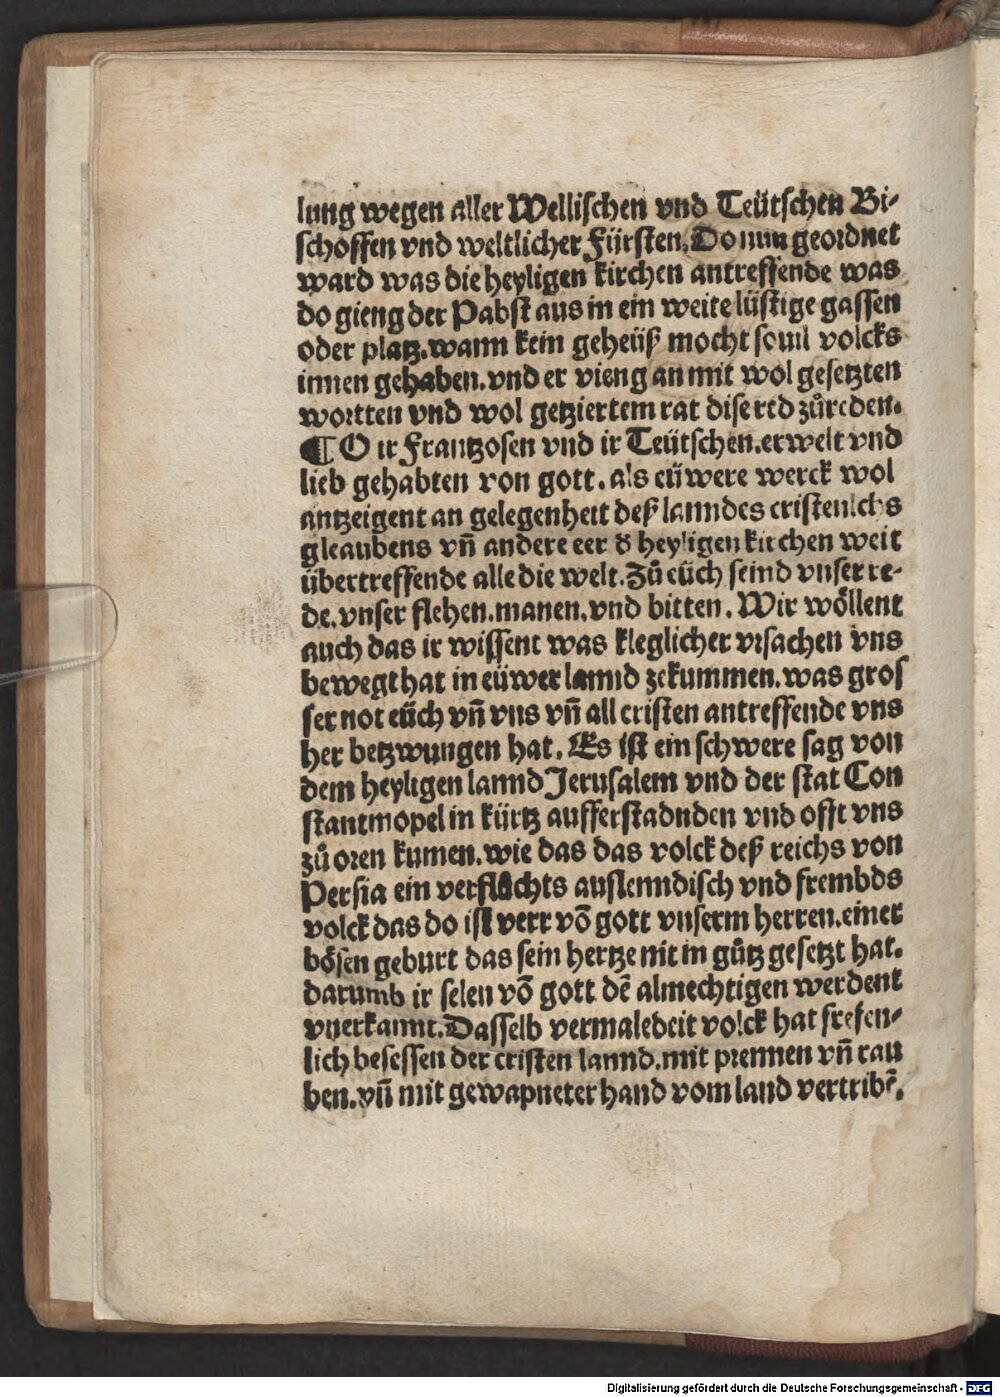 lung wegen aller Wellischen vnd Teütschen Bi-
schoffen vnd weltlicher Fürsten. Do nun geordnet
ward was die heyligen kirchen antreffende was
do gieng der Pabst aus in ein weite lüstige gassen
oder platz. wann kein geheüß mocht souil volcks
innen gehaben. vnd er vieng an mit wol gesetzten
wortten vnd wol getziertem rat dise red zůreden.
¶ O ir Frantzosen vnd ir Teütschen. erwelt vnd
lieb gehabten von gott. als eüwere werck wol
antzeigent an gelegenheit deß lanndes cristenlichs
gleaubens vñ andere eer d heyligen kirchen weit
übertreffende alle die welt. Zů eüch seind vnser re-
de. vnser flehen. manen. vnd bitten. Wir wöllent
auch das ir wissent was kleglicher vrsachen vns
bewegt hat in eüwer lannd zekummen. was gros
ser not eüch vñ vns vñ all cristen antreffende vns
her betzwungen hat. Es ist ein schwere sag von
dem heyligen lannd Jerusalem vnd der stat Con
stantinopel in kürtz aufferstadnden vnd offt vns
zů oren kumen. wie das das volck deß reichs von
Persia ein verflůchts auslenndisch vnd frembds
volck das do ist verr vō gott vnserm herren. einer
bösen geburt das sein hertze nit in gůtz gesetzt hat.
darumb ir selen vō gott dē almechtigen werdent
vnerkannt. Dasselb vermaledeit volck hat frefen-
lich besessen der cristen lannd. mit prennen vñ rau
ben. vñ mit gewapneter hand vom land vertribē.
Digitalisierung gefördert durch die Deutsche Forschungsgemeinschaft - DFG